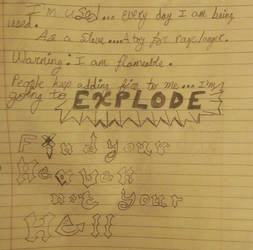 I'm used.... every day I am being
used.
As a slave.... try for rage/anger.
Warning: I am flameable.
People keep adding fire to me...I'm
going to EXPLODE
Find your
Heaven
not your
Hell